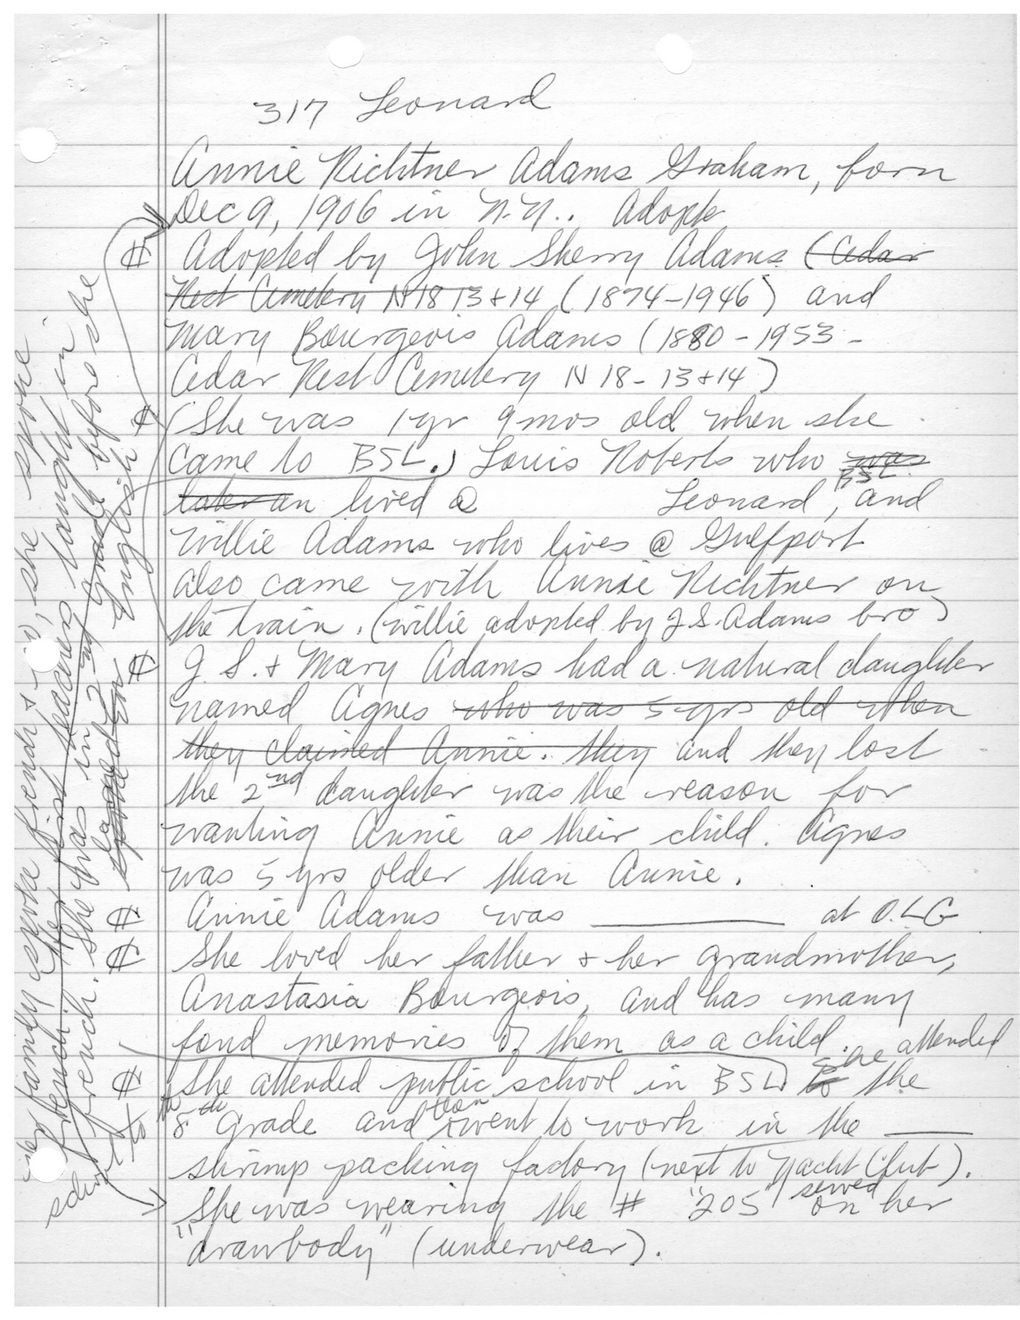 317 Leonard
Annie Richtner Adams Graham, born
Dec 9, 1906 in N.Y.. Adopt
# Adopted by John Sherry Adams (Cedar
Rest Cemetery N18 13+14 (1874-1946) and
Mary Bourgeois Adams (1880-1953-
Cedar Rest Cemetery N 18-13+14)
# (She was 1 yr 9 mos old when she
came to BSL.) Louis Roberts who was
later an lived @ Leonard, BSL and
Willie Adams who lives @ Gulfport
also came with Annie Richtner on
the train. (Willie adopted by J.S. Adams bro)
# J.S. + Mary Adams had a natural daughter
named Agnes who was 5 yrs old when
they claimed Annie. They and they lost
the 2nd daughter was the reason for
wanting Annie as their child. Agnes
was 5 yrs older than Annie.
# Annie Adams was ________ at O.L.G
# She loved her father + her grandmother,
Anastasia Bourgeois, and has many
fond memories of them as a child.
# She attended public school in BSL) to She attended the
to the 8th grade and then went to work in the ____
shrimp packing factory (next to Yacht Club).
She was wearing the # "205" sewed on her
"drawbody" (underwear).
Her family spoke french + so, she spoke
french. Her first teacher taught in
french. She was in 2nd grade before she
speaked En English